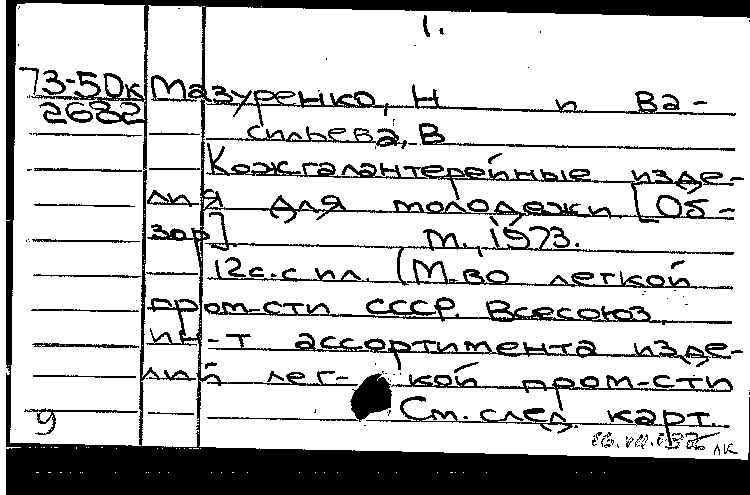 1.
73-50к Мазуренко, Н и Ва-
2682 сильева, В
Кожгалантерейные изде-
лия для молодежи [Об-
зор] М., 1973.
12с. с ил. (М-во легкой
пром-сти СССР. Всесоюз.
ин-т ассортимента изде-
лий лег- кой пром-сти
См. след. карт.
9
ЛК